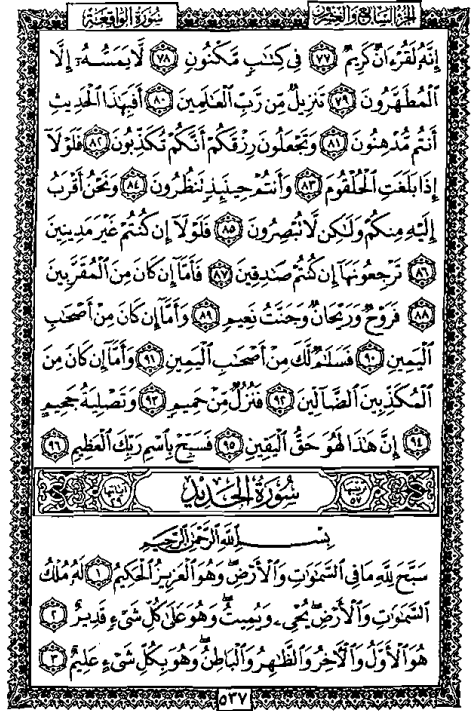 الجزء السابع والعشرون
سورة الواقعة
إِنَّهُۥ لَقُرْءَانٌ كَرِيمٌ ٧٧ فِى كِتَٰبٍ مَّكْنُونٍ ٧٨ لَّا يَمَسُّهُۥٓ إِلَّا
ٱلْمُطَهَّرُونَ ٧٩ تَنزِيلٌ مِّن رَّبِّ ٱلْعَٰلَمِينَ ٨٠ أَفَبِهَٰذَا ٱلْحَدِيثِ
أَنتُم مُّدْهِنُونَ ٨١ وَتَجْعَلُونَ رِزْقَكُمْ أَنَّكُمْ تُكَذِّبُونَ ٨٢ فَلَوْلَآ
إِذَا بَلَغَتِ ٱلْحُلْقُومَ ٨٣ وَأَنتُمْ حِينَئِذٍ تَنظُرُونَ ٨٤ وَنَحْنُ أَقْرَبُ
إِلَيْهِ مِنكُمْ وَلَٰكِن لَّا تُبْصِرُونَ ٨٥ فَلَوْلَآ إِن كُنتُمْ غَيْرَ مَدِينِينَ
٨٦ تَرْجِعُونَهَآ إِن كُنتُمْ صَٰدِقِينَ ٨٧ فَأَمَّآ إِن كَانَ مِنَ ٱلْمُقَرَّبِينَ
٨٨ فَرَوْحٌ وَرَيْحَانٌ وَجَنَّتُ نَعِيمٍ ٨٩ وَأَمَّآ إِن كَانَ مِنْ أَصْحَٰبِ
ٱلْيَمِينِ ٩٠ فَسَلَٰمٌ لَّكَ مِنْ أَصْحَٰبِ ٱلْيَمِينِ ٩١ وَأَمَّآ إِن كَانَ مِنَ
ٱلْمُكَذِّبِينَ ٱلضَّآلِّينَ ٩٢ فَنُزُلٌ مِّنْ حَمِيمٍ ٩٣ وَتَصْلِيَةُ جَحِيمٍ
٩٤ إِنَّ هَٰذَا لَهُوَ حَقُّ ٱلْيَقِينِ ٩٥ فَسَبِّحْ بِٱسْمِ رَبِّكَ ٱلْعَظِيمِ ٩٦
ترتيبها ٥٧ سورة الحديد آياتها ٢٩
بِسْمِ ٱللَّهِ ٱلرَّحْمَٰنِ ٱلرَّحِيمِ
سَبَّحَ لِلَّهِ مَا فِى ٱلسَّمَٰوَٰتِ وَٱلْأَرْضِ ۖ وَهُوَ ٱلْعَزِيزُ ٱلْحَكِيمُ ١ لَهُۥ مُلْكُ
ٱلسَّمَٰوَٰتِ وَٱلْأَرْضِ ۖ يُحْىِۦ وَيُمِيتُ ۖ وَهُوَ عَلَىٰ كُلِّ شَىْءٍ قَدِيرٌ ٢
هُوَ ٱلْأَوَّلُ وَٱلْءَاخِرُ وَٱلظَّٰهِرُ وَٱلْبَاطِنُ ۖ وَهُوَ بِكُلِّ شَىْءٍ عَلِيمٌ ٣
٥٣٧